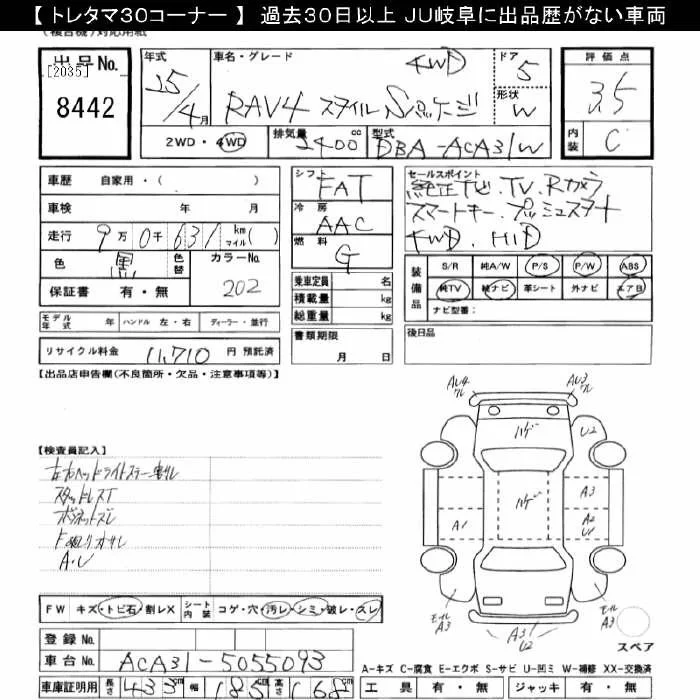 【 トレタマ30コーナー 】 過去30日以上 JU岐阜に出品歴がない車両
出品No.
[2035]
8442
年式
15/4月
車名・グレード
RAV4 スタイル Sパッケージ
4WD
ドア
5
形状
W
評価点
3.5
内装
C
2WD・4WD
排気量
2400cc
型式
DBA-ACA31W
車歴 自家用・( )
車検 年 月
走行 9万0千631 km マイル( )
色 黒 色替 カラーNo. 202
保証書 有・無
モデル年式 年 ハンドル 左・右 ディーラー・並行
リサイクル料金 11,710 円 預託済
シフト FAT
冷房 AAC
燃料 G
乗車定員 名
積載量 kg
総重量 kg
書類期限
月 日
セールスポイント
純正ナビ.TV.Rカメラ
スマートキー.プッシュスタート
4WD.HID
装備品
S/R 純A/W P/S P/W ABS
純TV 純ナビ 革シート 外ナビ エアB
ナビ型番:
後日品
【出品店申告欄(不良箇所・欠品・注意事項等)】
【検査員記入】
左右ヘッドライトステー割レ
スタッドレスT
ボンネットズレ
下廻りオサレ
A.U
AU4
AU3
ハゲ
U2
ハゲ
A1
A3
A2
U1
A3
A3
A3/U1
FW キズ・トビ石・割レX シート内装 コゲ・穴・汚レ・シミ・破レ・スレ
登録No.
車台No. ACA31-5055093
車庫証明用 長さ 433 幅 185 高さ 168
スペア
A-キズ C-腐食 E-エクボ S-サビ U-凹ミ W-補修 XX-交換済
工具 有・無 ジャッキ 有・無